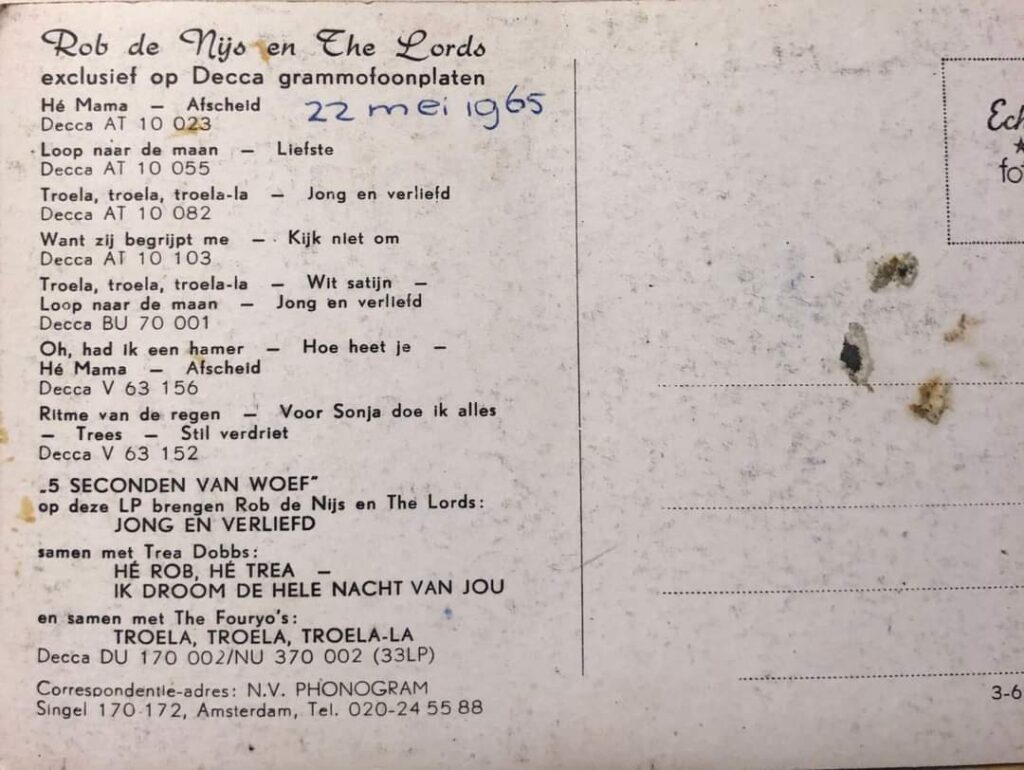 Rob de Nijs en The Lords
exclusief op Decca grammofoonplaten
Hé Mama — Afscheid
22 mei 1965
Decca AT 10 023
Loop naar de maan — Liefste
Decca AT 10 055
Troela, troela, troela-la — Jong en verliefd
Decca AT 10 082
Want zij begrijpt me — Kijk niet om
Decca AT 10 103
Troela, troela, troela-la — Wit satijn —
Loop naar de maan — Jong en verliefd
Decca BU 70 001
Oh, had ik een hamer — Hoe heet je —
Hé Mama — Afscheid
Decca V 63 156
Ritme van de regen — Voor Sonja doe ik alles
— Trees — Stil verdriet
Decca V 63 152
„5 SECONDEN VAN WOEF"
op deze LP brengen Rob de Nijs en The Lords:
JONG EN VERLIEFD
samen met Trea Dobbs:
HÉ ROB, HÉ TREA —
IK DROOM DE HELE NACHT VAN JOU
en samen met The Fouryo's:
TROELA, TROELA, TROELA-LA
Decca DU 170 002/NU 370 002 (33LP)
Correspondentie-adres: N.V. PHONOGRAM
Singel 170-172, Amsterdam, Tel. 020-24 55 88
Ech
fo
3-6